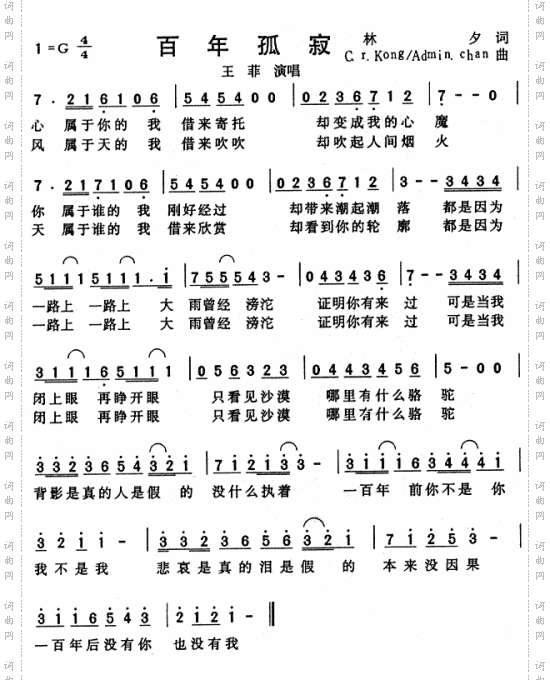 百年孤寂
林夕 词
1=G 4/4
C.r.Kong/Admin.chan 曲
王菲 演唱
7· 216106 | 545400 | 0236712 | 7--0 |
心 属于你的 我 借来寄托 却变成我的心 魔
风 属于天的 我 借来吹吹 却吹起人间烟 火
7· 217106 | 545400 | 0236712 | 3--3434 |
你 属于谁的 我 刚好经过 却带来潮起潮 落 都是因为
天 属于谁的 我 借来欣赏 却看到你的轮 廓 都是因为
5111 5111·i | 755543- | 043436 | 7--3434 |
一路上 一路上 大 雨曾经 滂沱 证明你有来 过 可是当我
一路上 一路上 大 雨曾经 滂沱 证明你有来 过 可是当我
3111 65111 | 056323 | 0443456 | 5-00 |
闭上眼 再睁开眼 只看见沙漠 哪里有什么骆 驼
闭上眼 再睁开眼 只看见沙漠 哪里有什么骆 驼
332365 4321 | 712133- | 3111634441 |
背影是真的人是假 的 没什么执着 一百年 前你不是 你
3211- | 3323654321 | 71253- |
我 不是 我 悲哀是真的泪是假 的 本来没因果
3116543 | 2121- ‖
一百年后没有你 也没有我
词曲网